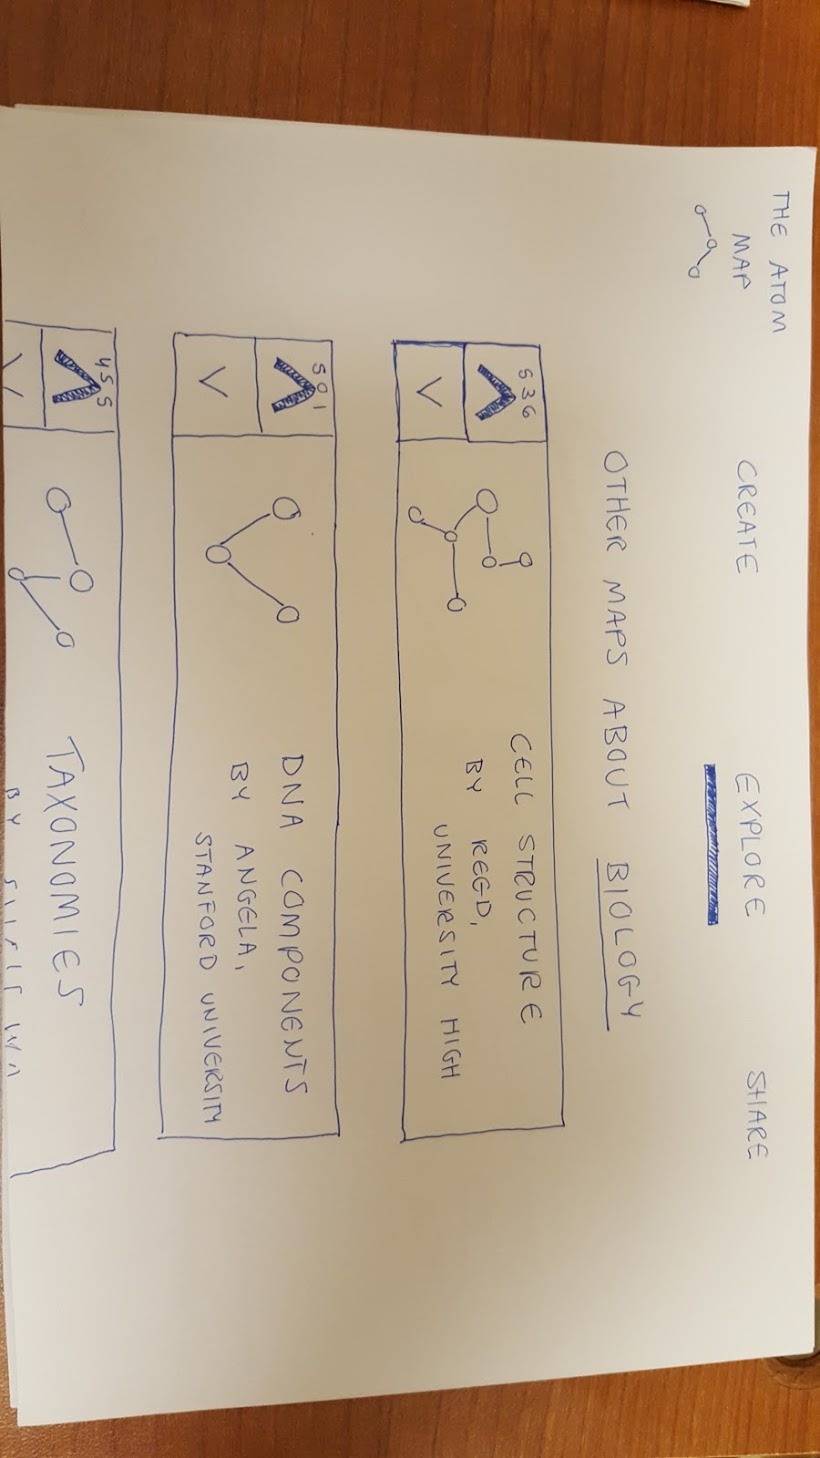 THE ATOM
MAP
CREATE
EXPLORE
SHARE
OTHER MAPS ABOUT BIOLOGY
536
CELL STRUCTURE
BY REED,
UNIVERSITY HIGH
501
DNA COMPONENTS
BY ANGELA,
STANFORD UNIVERSITY
455
TAXONOMIES
BY